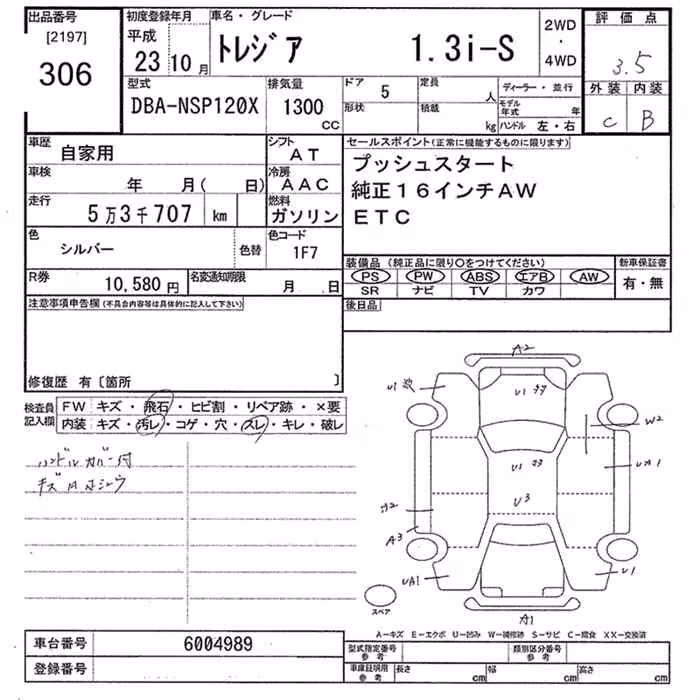 出品番号
[2197]
306
初度登録年月
平成
23 10 月
車名・グレード
トレジア 1.3i-S
2WD
・
4WD
評価点
3.5
外装 内装
C B
型式
DBA-NSP120X
排気量
1300
CC
ドア 5
形状
定員 人
積載 kg
ディーラー・並行
モデル年式 年
ハンドル 左・右
車歴 自家用
シフト AT
車検 年 月( 日)
冷房 AAC
走行 5万3千707 km
燃料 ガソリン
色 シルバー
色替
色コード 1F7
R券 10,580 円
名変通知期限 月 日
セールスポイント(正常に機能するものに限ります)
プッシュスタート
純正16インチAW
ETC
装備品 (純正品に限り○をつけてください)
PS PW ABS エアB AW
SR ナビ TV カワ
新車保証書
有・無
後日品
注意事項申告欄(不具合内容等は具体的に記入して下さい)
修復歴 有〔箇所 〕
検査員
記入欄
FW キズ・飛石・ヒビ割・リペア跡・×要
内装 キズ・汚レ・コゲ・穴・スレ・キレ・破レ
ハンドルカバー付
A2
U1
U1
W2
UA1
U3
A2
A3
UA1
U1
A1
スペア
A―キズ E―エクボ U―凹み W―補修跡 S―サビ C―腐食 XX―交換済
車台番号 6004989
登録番号
型式指定番号
参考
類別区分番号
参考
車庫証明用
参考
長さ cm 幅 cm 高さ cm